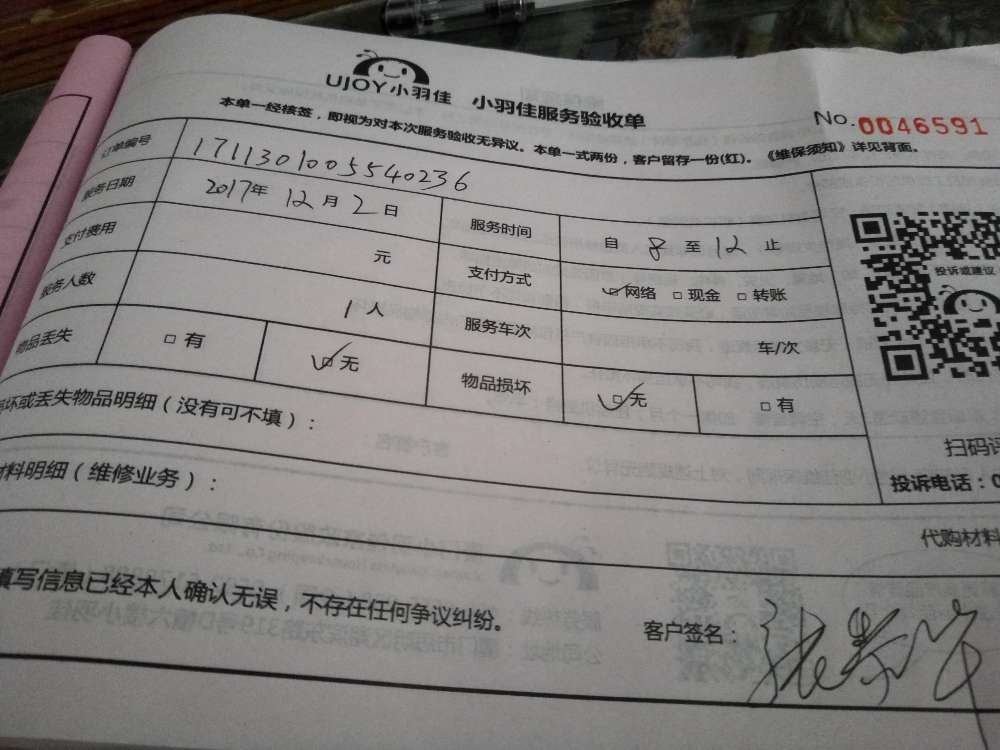 UJOY小羽佳 小羽佳服务验收单
No.0046591
本单一经核签，即视为对本次服务验收无异议。本单一式两份，客户留存一份(红)。《维保须知》详见背面。
订单编号 17113010055540236
服务日期 2017年 12月 2日 服务时间 自 8 至 12 止
支付费用 元 支付方式 网络 现金 转账
服务人数 1人 服务车次 车/次
物品丢失 有 无 物品损坏 无 有
投诉或建议
坏或丢失物品明细（没有可不填）：
扫码
材料明细（维修业务）：
投诉电话：0
代购材料
填写信息已经本人确认无误，不存在任何争议纠纷。
客户签名：